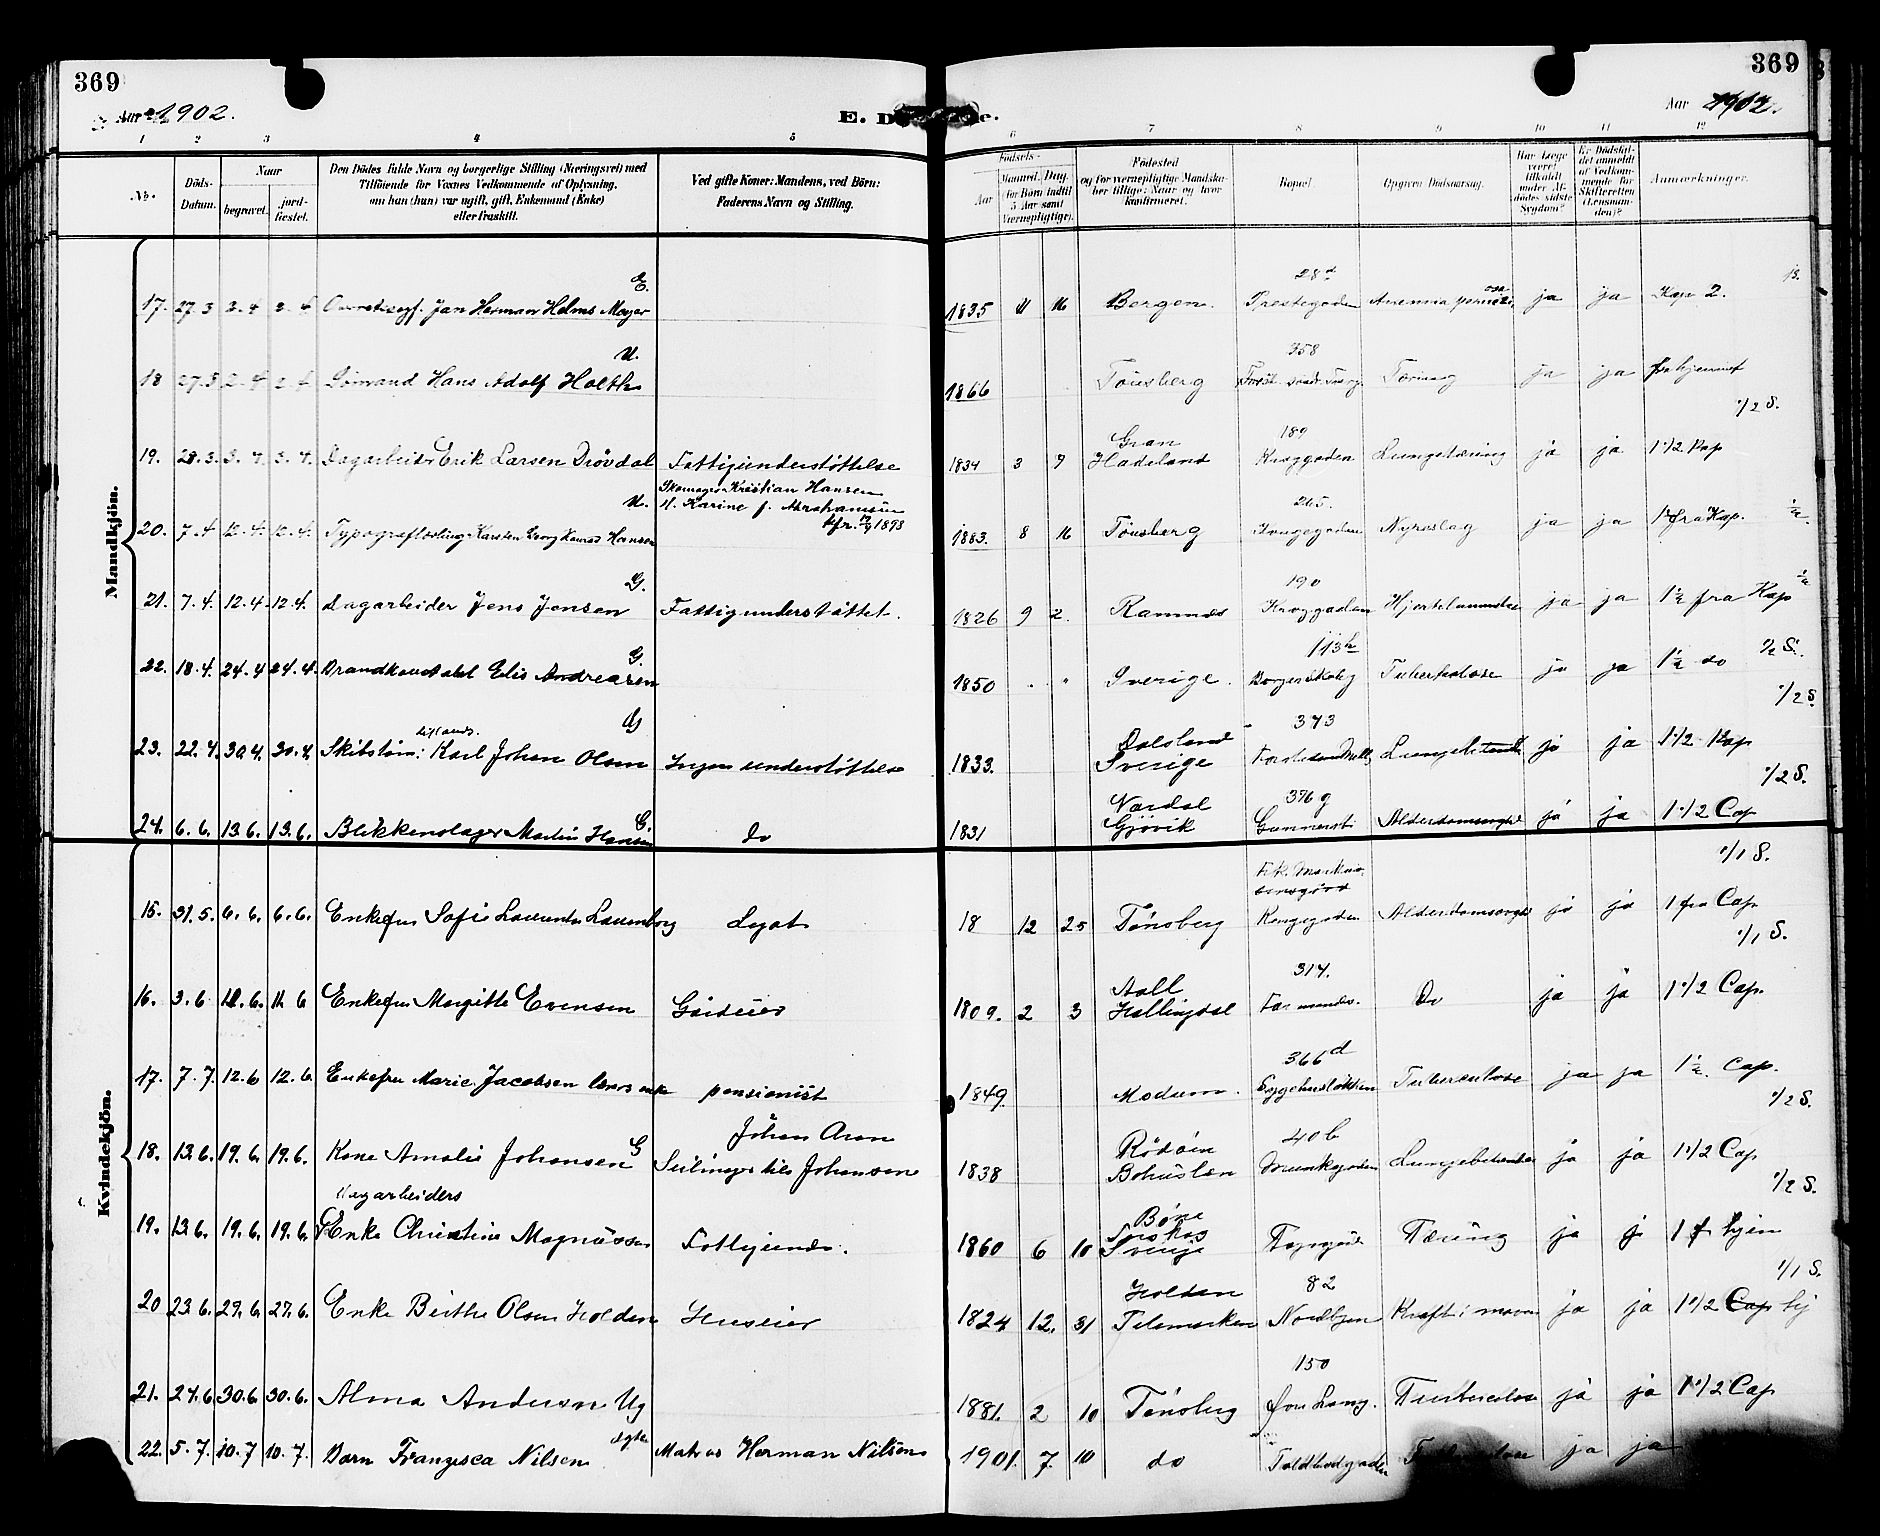 369
369
Aar 1902.
E. D
e.
Aar 1902.
1 2 3 4 5 6 7 8 9 10 11 12
No.
Döds-Datum.
Naar
begravet.
jord-fæstet.
Den Dödes fulde Navn og borgerlige Stilling (Næringsvei) med
Tilföiende for Voxnes Vedkommende af Oplysning,
om han (hun) var ugift, gift, Enkemand (Enke)
eller fraskilt.
Ved gifte Koner: Mandens, ved Börn:
Faderens Navn og Stilling.
Födsels-
Aar
Maaned. Dag.
(for Børn indtil
5 Aar samt
Værnepligtige).
Födested
og for værnepligtige Mandska-
ber tillige: Naar og hvor
konfirmeret.
Bopæl.
Opgiven Dödsaarsag.
Har Læge
været
tilkaldt
under Af-
dødes sidste
Sygdom?
Er Dödsfal-
det anmeldt
af Vedkom-
mende for
Skifteretten
(Lensman-
den)?
Anmærkninger.
Mandkjön.
17. 27.3 2.4 2.4 Jan Herman Helms Meyer E. 1835 11 16 Bergen. 28 d Prestegaden Anemia ja ja Kap 2.
18 27.3 2.4 2.4 Sømand Hans Adolf Holth U. 1866 Tønsberg 358 Tæring ja ja fra hjemmet
1/2 S.
19. 28.3. 3.4. 3.4. Dagarbeider Erik Larsen Drövdal Fattigunderstøttelse 1834 3 9 Gran Hadeland 189 Kroggaden Lungetæring ja ja 1 1/2 Kap
20. 7.4 12.4. 12.4. Typograflærling Karsten Georg Konrad Hansen U. Skomager Kristian Hansen
H. Karine f. Abrahamsen
kfr. 1893
1883. 8 16 Tönsberg 265. Kongegaden ja ja 1 fra Kap. 1/2
21. 7.4. 12.4 12.4. Dagarbeider Jens Jensen G. Fattigunderstøttet. 1826 9 2. Ramnes 190 Kroggaden ja ja 1 1/2 fra Kap 1/2
22. 18.4. 24.4 24.4. Brandkonstabel Elis Andreasen G. 1850 Sverige. 113 b Tuberkulose ja ja 1 1/2 do 1/2 S.
1/2 S
23. 22.4. 30.4. 30.4. Skibstøm: Karl Johan Olsen G Ingen understøttelse 1833. Dalsland Sverige 373 ja ja 1 1/2 Kap
1/2 S.
24. 6.6. 13.6. 13.6. Blikkenslager Martin Hansen G. do 1831 Vardal Gjøvik 376 g Alderdomssvaghed ja ja 1 1/2 Cap
1/1 S.
Kvindekjön.
15. 31.5. 6.6. 6.6. Enkefru Sofie Laurentze Lauenborg Legat 18 12 25 Tønsberg Kongegaden Alderdomssvaghed ja ja 1 fra Cap
1/1 S.
16. 3.6. 11.6. 11.6 Enkefru Margitte Evensen Gårdeier 1809. 2 3 Aall Hallingdal 314. Do ja ja 1 1/2 Cap.
17. 7.7. 12.6 12.6. Enkefru Marie Jacobsen pensionist 1849. Modum. 366 d Sygehusløkken Tuberculose ja ja 1 1/2 Cap.
1/2 S.
18. 13.6. 19.6. 19.6. Kone Amalie Johansen G Johan Aron
Johansen 1838 Bohuslen 40 b Munkegaden Lungebetændelse ja ja 1 1/2 Cap
1/2 S.
Dagarbeiders
19. 13.6. 19.6. 19.6. Enke Christine Magnussen Fattigunds. 1860 6 10 Sverige Tæring ja j 1 f hjem
1/1 S.
20 23.6. 27.6. 27.6. Enke Birthe Olsen Holden Huseier 1824 12. 31 Holden Telemarken 82 Nordbyen Kræft i maven ja ja 1 1/2 Cap hj
21. 24.6 30.6 30.6. Alma Andersen Ug 1881. 2 10 Tönsberg 150 Øvre Lang. Tuberculose ja ja 1 1/2 Cap
22. 5.7. 10.7 10.7. Barn Franzisca Nilsen dgtr Matros Herman Nilsen 1901. 7. 10 do Toldbodgaden ja ja